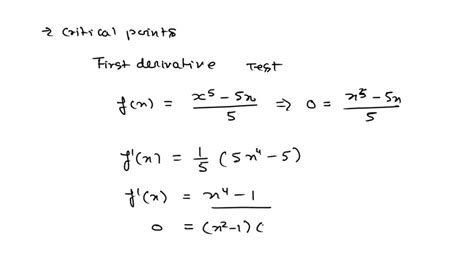 → Critical points
First derivative Test
f(x) = (x⁵ - 5x)/5 ⇒ 0 = (x⁵ - 5x)/5
f'(x) = 1/5 (5x⁴ - 5)
f'(x) = x⁴ - 1
0 = (x² - 1) (